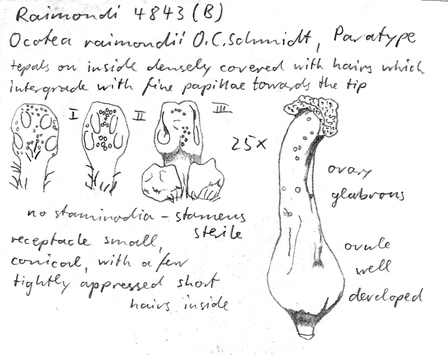 Raimondi 4843 (B)
Ocotea raimondii O.C.Schmidt, Paratype
tepals on inside densely covered with hairs which
intergrade with fine papillae towards the tip
I II III
25x
ovary
glabrous
no staminodia - stamens
sterile
receptacle small,
conical, with a few
tightly appressed short
hairs inside
ovule
well
developed